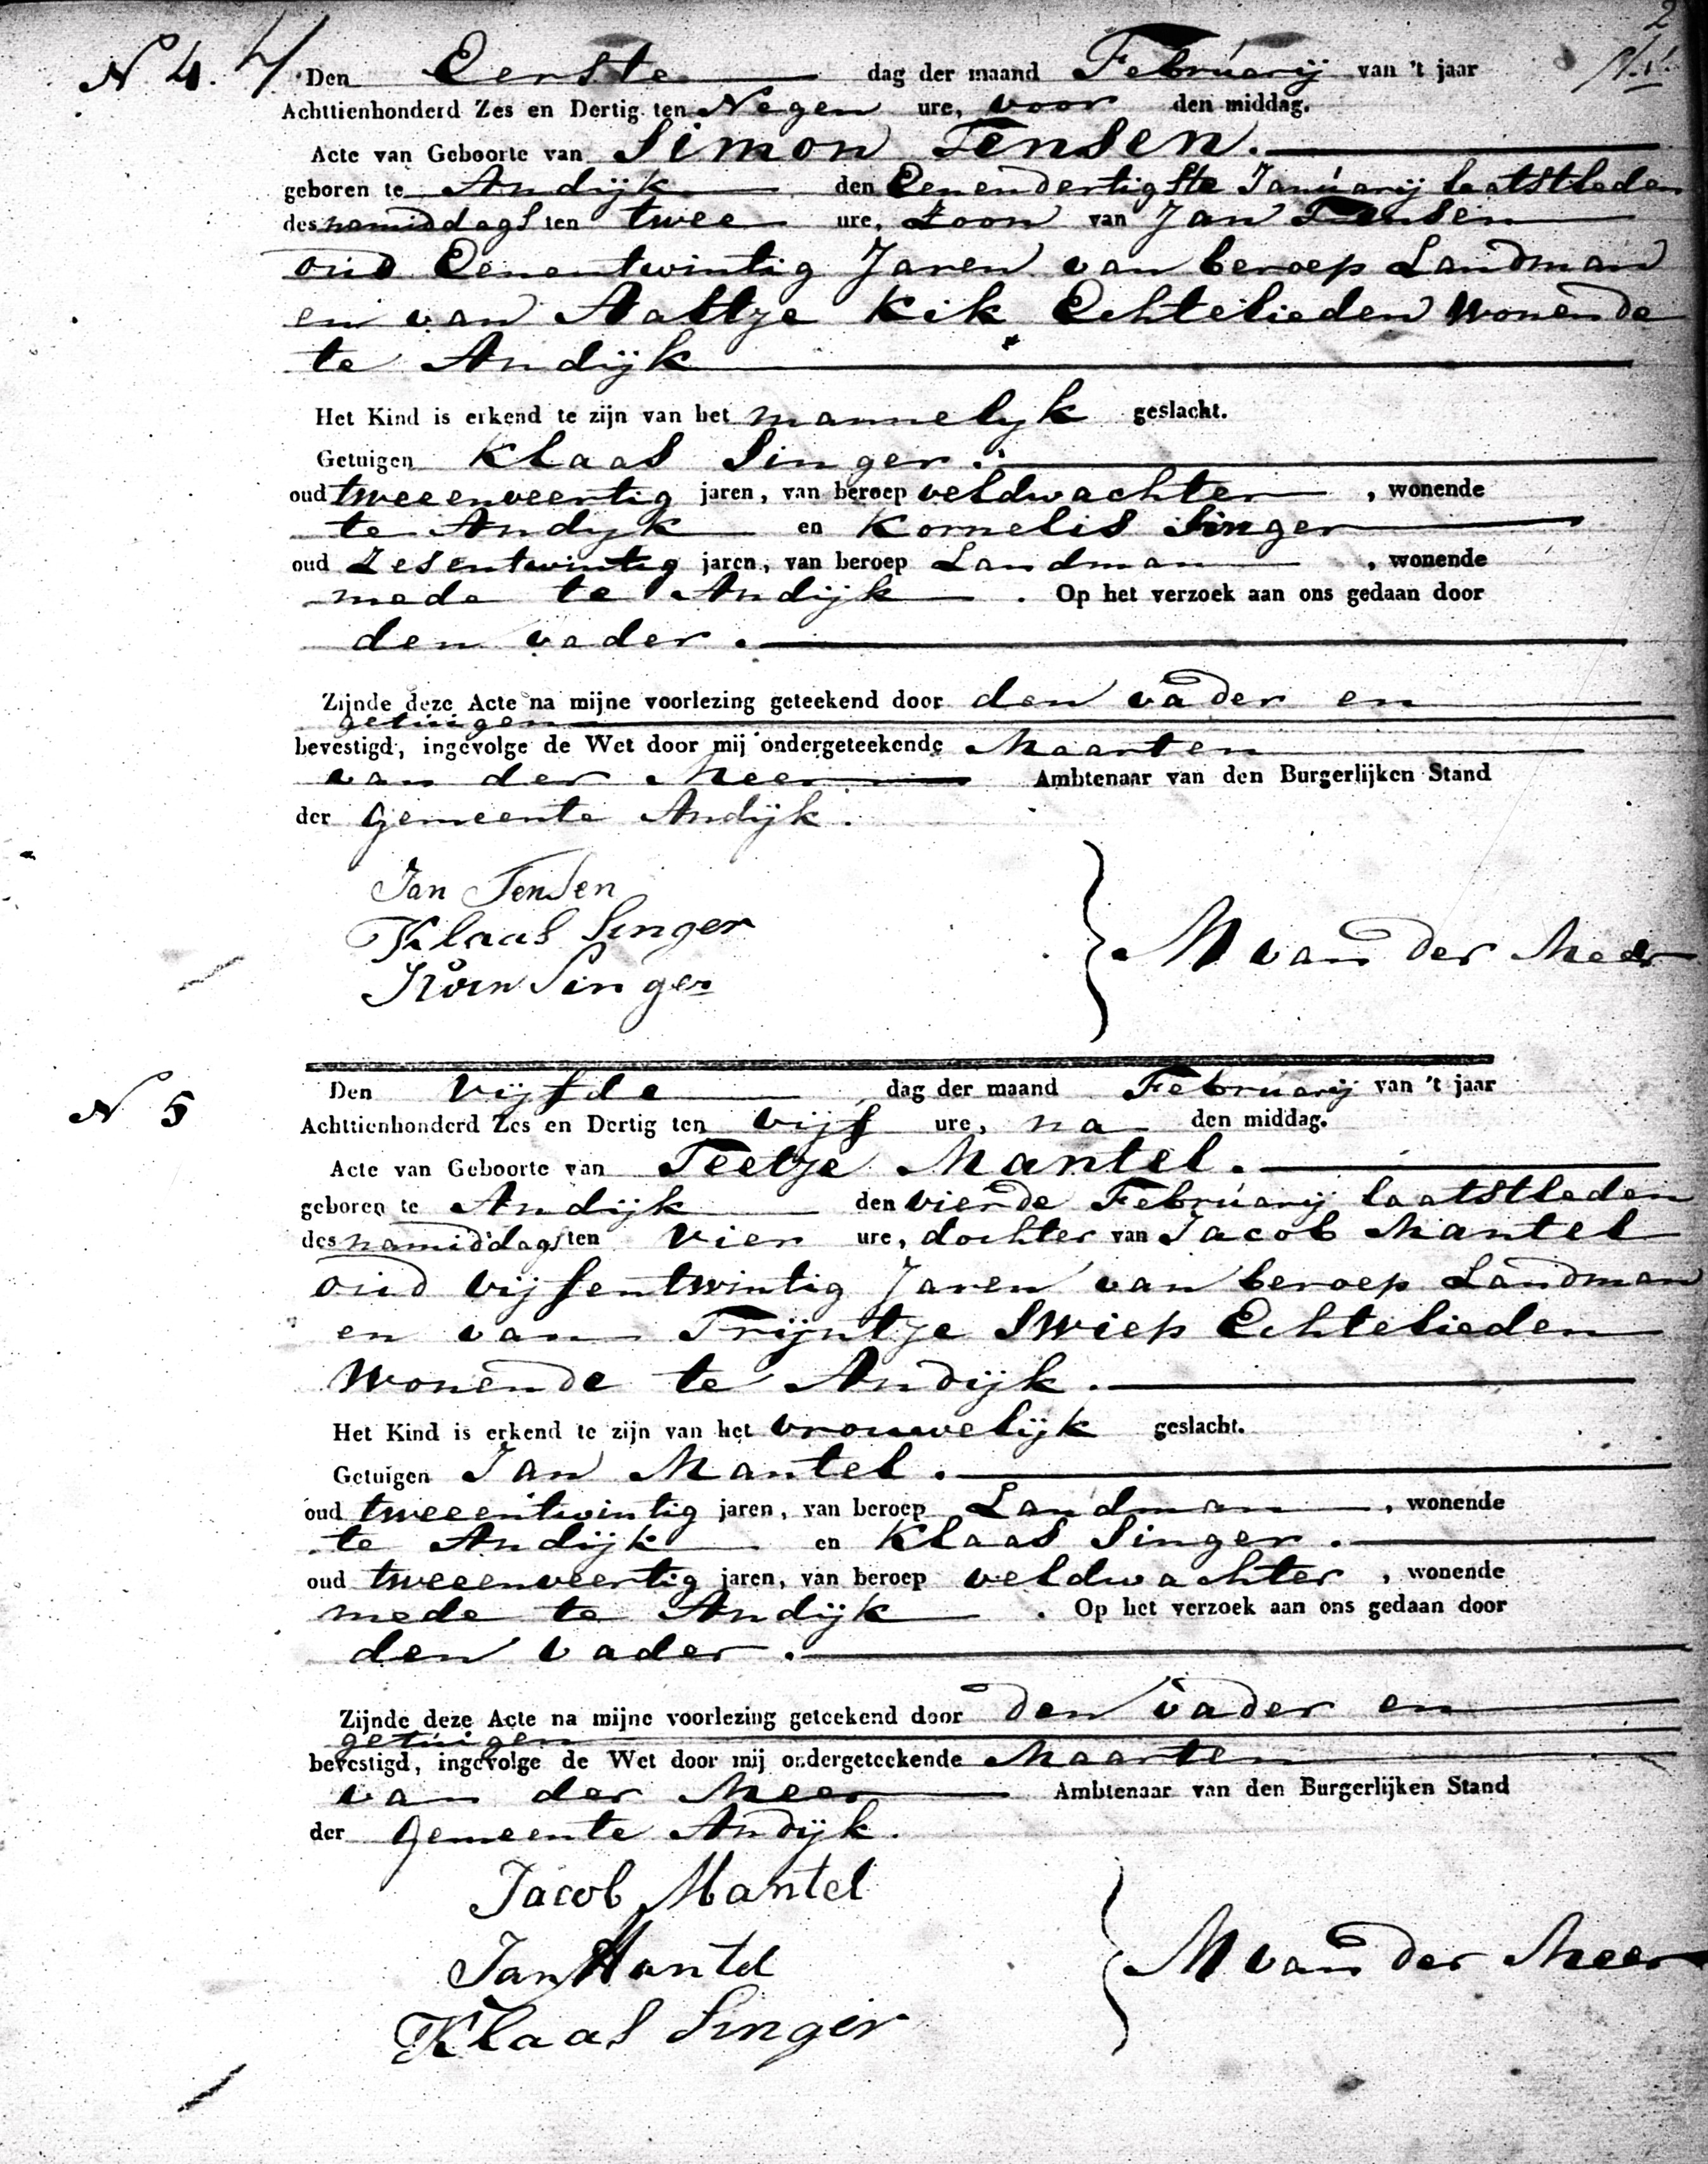 2
N 4. Den Eerste dag der maand Februarij van 't jaar
Achttienhonderd Zes en Dertig ten Negen ure, voor den middag.
Acte van Geboorte van Simon Tensen.
geboren te Andijk den Eenendertigste Januarij laatstleden
des namiddags ten twee ure, Zoon van Jan Tensen
oud Eenentwintig Jaren van beroep Landman
en van Aaltje Kik Echtelieden Wonende
te Andijk
Het Kind is erkend te zijn van het mannelijk geslacht.
Getuigen Klaas Singer.
oud tweeenveertig jaren, van beroep veldwachter, wonende
te Andijk en Kornelis Singer
oud Zesentwintig jaren, van beroep Landman, wonende
mede te Andijk. Op het verzoek aan ons gedaan door
den vader.
Zijnde deze Acte na mijne voorlezing geteekend door den vader en
getuigen
bevestigd, ingevolge de Wet door mij ondergeteekende Maarten
van der Meer Ambtenaar van den Burgerlijken Stand
der Gemeente Andijk.
Jan Tensen
Klaas Singer
Singer
M van der Meer
N 5 Den vijfde dag der maand Februarij van 't jaar
Achttienhonderd Zes en Dertig ten vijf ure, na den middag.
Acte van Geboorte van Teetje Mantel.
geboren te Andijk den vierde Februarij laatstleden
des namiddags ten vier ure, dochter van Jacob Mantel
oud vijfentwintig Jaren van beroep Landman
en van Trijntje Swiep Echtelieden
Wonende te Andijk.
Het Kind is erkend te zijn van het vrouwelijk geslacht.
Getuigen Jan Mantel.
oud tweeentwintig jaren, van beroep Landman, wonende
te Andijk en Klaas Singer.
oud tweeenveertig jaren, van beroep veldwachter, wonende
mede te Andijk. Op het verzoek aan ons gedaan door
den vader.
Zijnde deze Acte na mijne voorlezing geteekend door den vader en
getuigen
bevestigd, ingevolge de Wet door mij ondergeteekende Maarten
van der Meer Ambtenaar van den Burgerlijken Stand
der Gemeente Andijk.
Jacob Mantel
Jan Mantel
Klaas Singer
M van der Meer